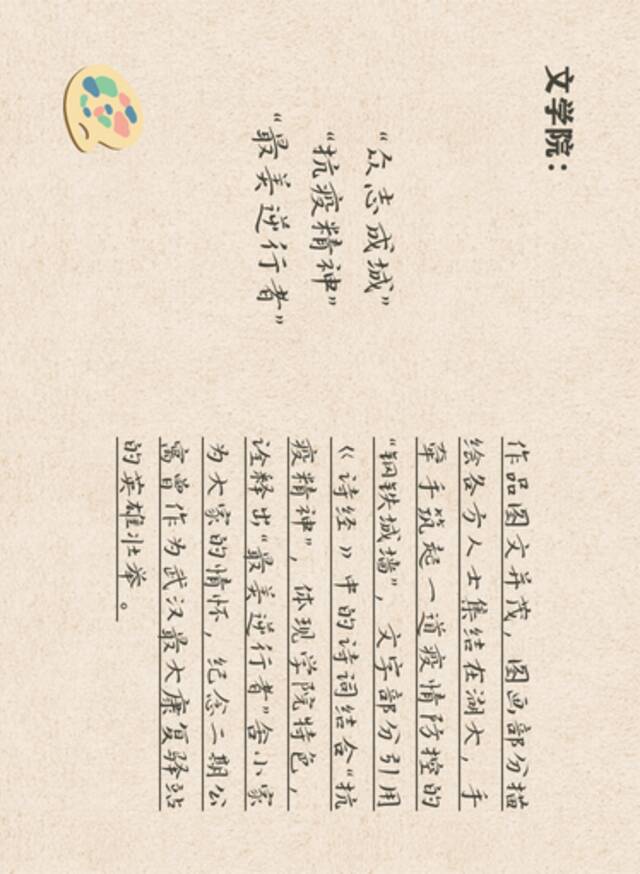 文学院：
“众志成城”
“抗疫精神”
“最美逆行者”
作品图文并茂，图画部分描
绘各方人士集结在湖大，手
牵手筑起一道疫情防控的
“钢铁城墙”，文字部分引用
《诗经》中的诗词结合“抗
疫精神”，体现学院特色，
诠释出“最美逆行者”舍小家
为大家的情怀，纪念二期公
寓曾作为武汉最大康复驿站
的英雄壮举。